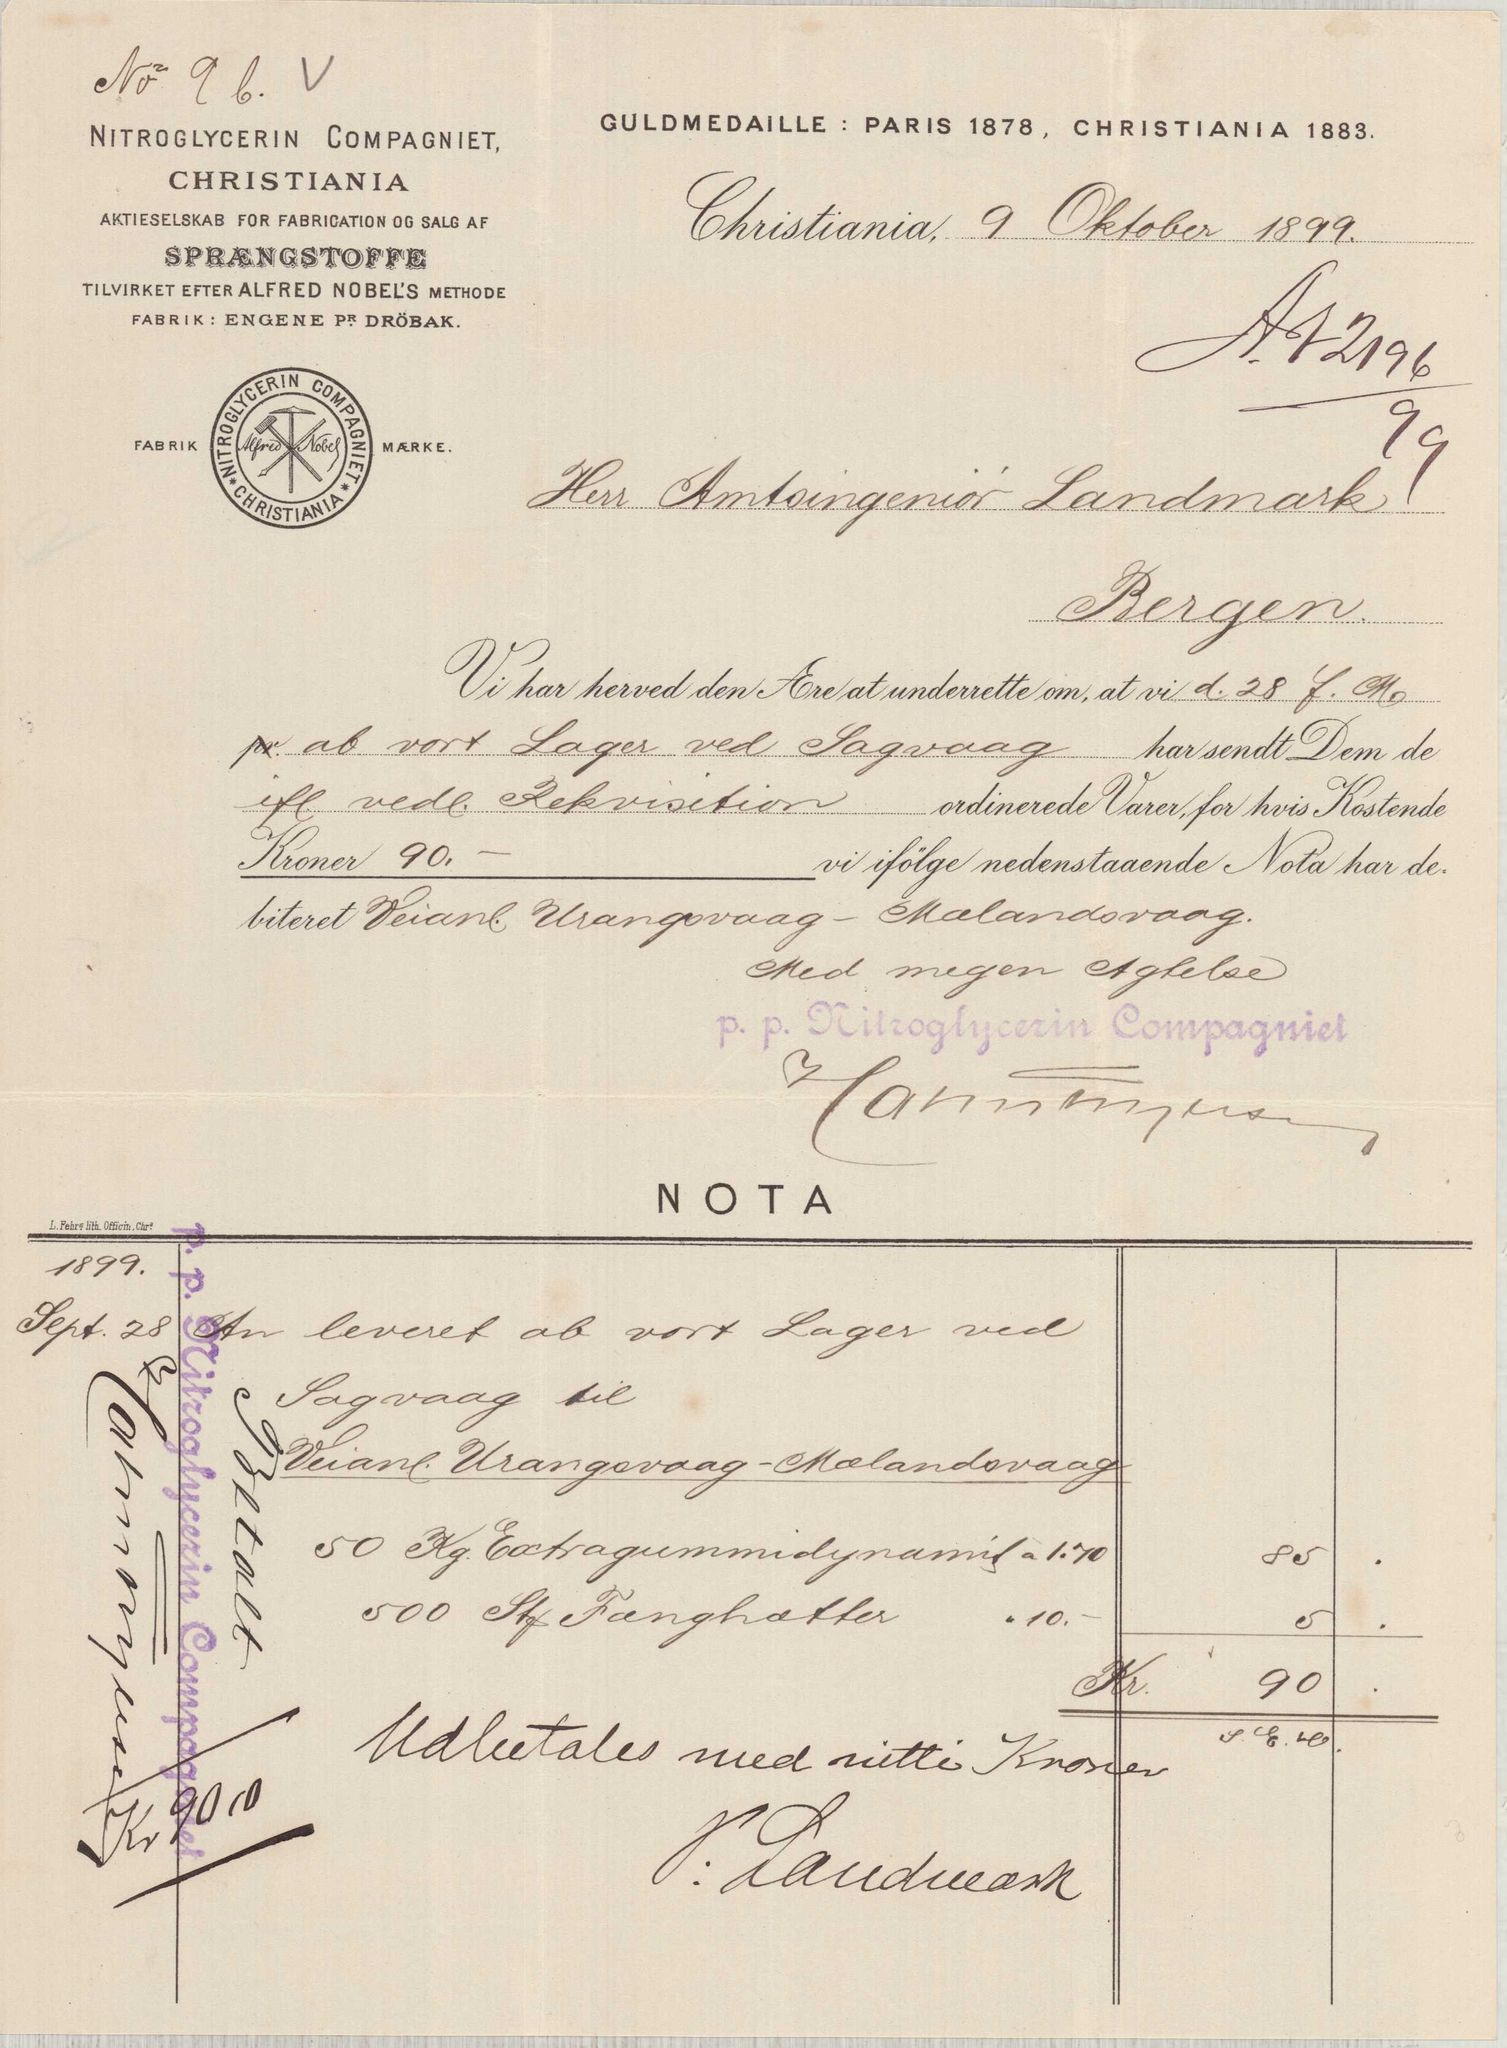 No 9 b. V
NITROGLYCERIN COMPAGNIET,
CHRISTIANIA
AKTIESELSKAB FOR FABRICATION OG SALG AF
SPRÆNGSTOFFE
TILVIRKET EFTER ALFRED NOBEL'S METHODE
FABRIK: ENGENE PR DRÖBAK.
FABRIK MÆRKE.
NITROGLYCERIN COMPAGNIET
* CHRISTIANIA *
Alfred Nobel
GULDMEDAILLE: PARIS 1878, CHRISTIANIA 1883.
Christiania, 9 Oktober 1899.
2196
99
Herr Amtsingeniör Landmark
Bergen.
Vi har herved den Ære at underrette om, at vi d. 28 f. M.
pr. ab vort Lager ved Sagvaag har sendt Dem de
ifl. vedl. Rekvisition ordinerede Varer, for hvis Kostende
Kroner 90.- vi ifölge nedenstaaende Nota har de-
biteret Veianl. Urangsvaag - Mælandsvaag.
Med megen Agtelse
p. p. Nitroglycerin Compagniet
NOTA
L. Fehrs lith. Officin, Chra
1899.
Sept. 28 An leveret ab vort Lager ved
Sagvaag til
Veianl. Urangsvaag - Mælandsvaag
50 Kg. Extragummidynamit a 1.70 85 .
500 Stk Fænghætter " 10.- 5 .
Kr. 90 .
S. E. &O.
Udbetales med nitti Kroner
P. Landmark
Betalt
p. p. Nitroglycerin Compagniet
Kr 90